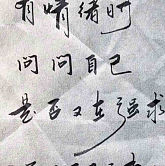 有情绪时
问问自己
是否又在强求